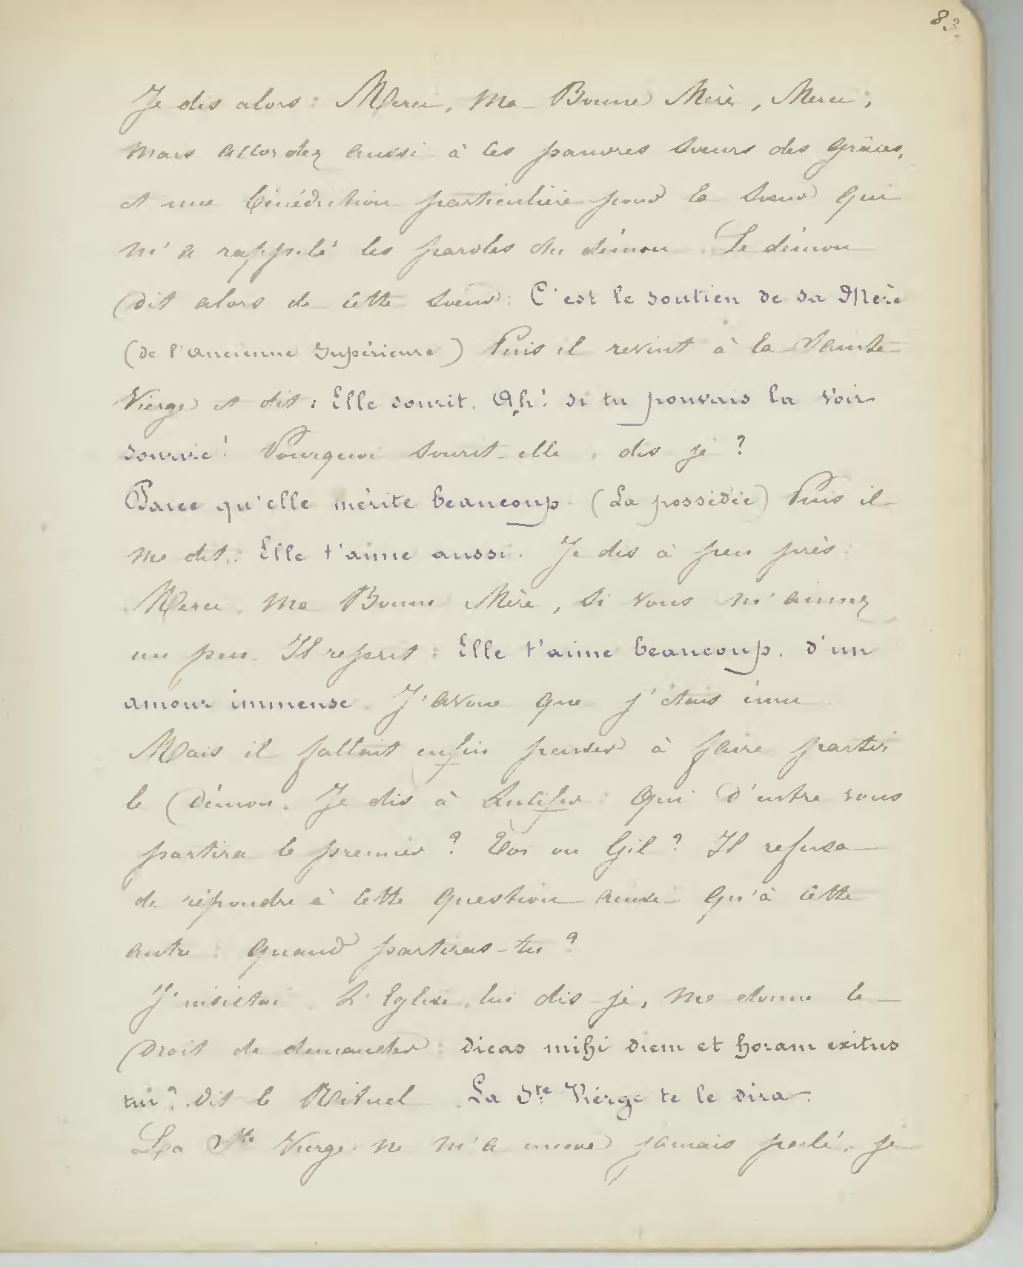 83.
Je dis alors : Merci, ma Bonne Mère, Merci ;
mais accordez aussi à ces pauvres Sœurs des grâces,
et une bénédiction particulière pour la Sœur qui
m'a rappelé les paroles du démon. Le démon
dit alors de cette Sœur : C'est le soutien de sa Mère
(de l'ancienne Supérieure) Puis il revint à la Sainte
Vierge et dit : Elle sourit. Ah ! si tu pouvais la voir
sourire ! Pourquoi sourit-elle, dis je ?
Parce qu'elle mérite beaucoup. (La possédée) Puis il
me dit : Elle t'aime aussi. Je dis à peu près :
Merci, ma Bonne Mère, si vous m'aimez
un peu. Il reprit : Elle t'aime beaucoup, d'un
amour immense. J'avoue que j'étais ému.
Mais il fallait enfin penser à faire partir
le Démon. Je dis à Lucifer : Qui d'entre vous
partira le premier ? Toi ou Gil ? Il refusa
de répondre à cette question ainsi qu'à cette
autre : Quand partiras-tu ?
J'insistai. L'Eglise, lui dis-je, me donne le
Droit de demander : dicas mihi diem et horam exitus
tui ? dit le Rituel. La Ste Vierge te le dira.
La Ste Vierge ne m'a encore jamais parlé, je